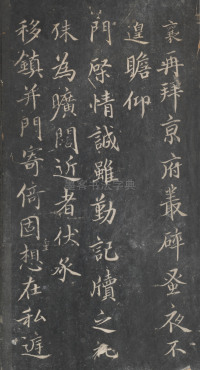 襄再拜京府叢碎蚤夜不
遑瞻仰
門棨情誠雖勤記牘之礼
殊為曠闊近者伏承
移鎮并門寄倚固想在私近